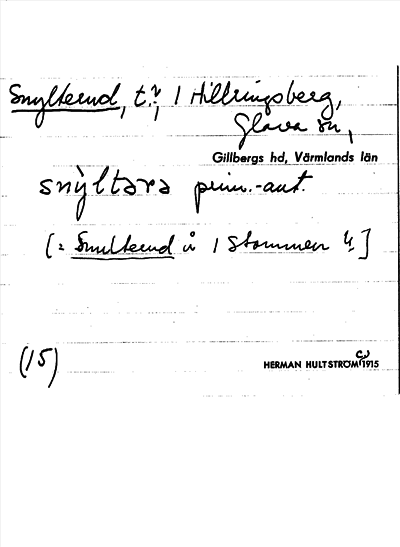 Snylterud, t.?, / Hillringsberg,
Glava sn,
Gillbergs hd, Värmlands län
snỳltara prim.-ant.
[= Smulterud å / Stommen 4]
(15)
HERMAN HULTSTRÖM C) 1915